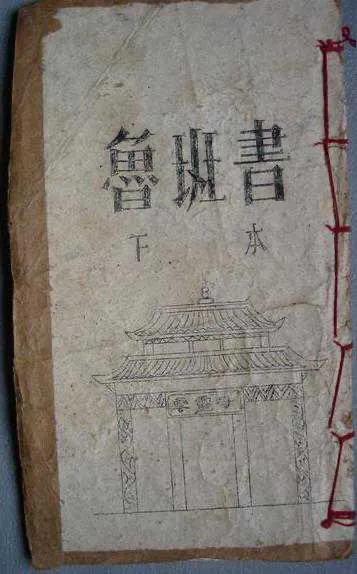 魯班書
下本